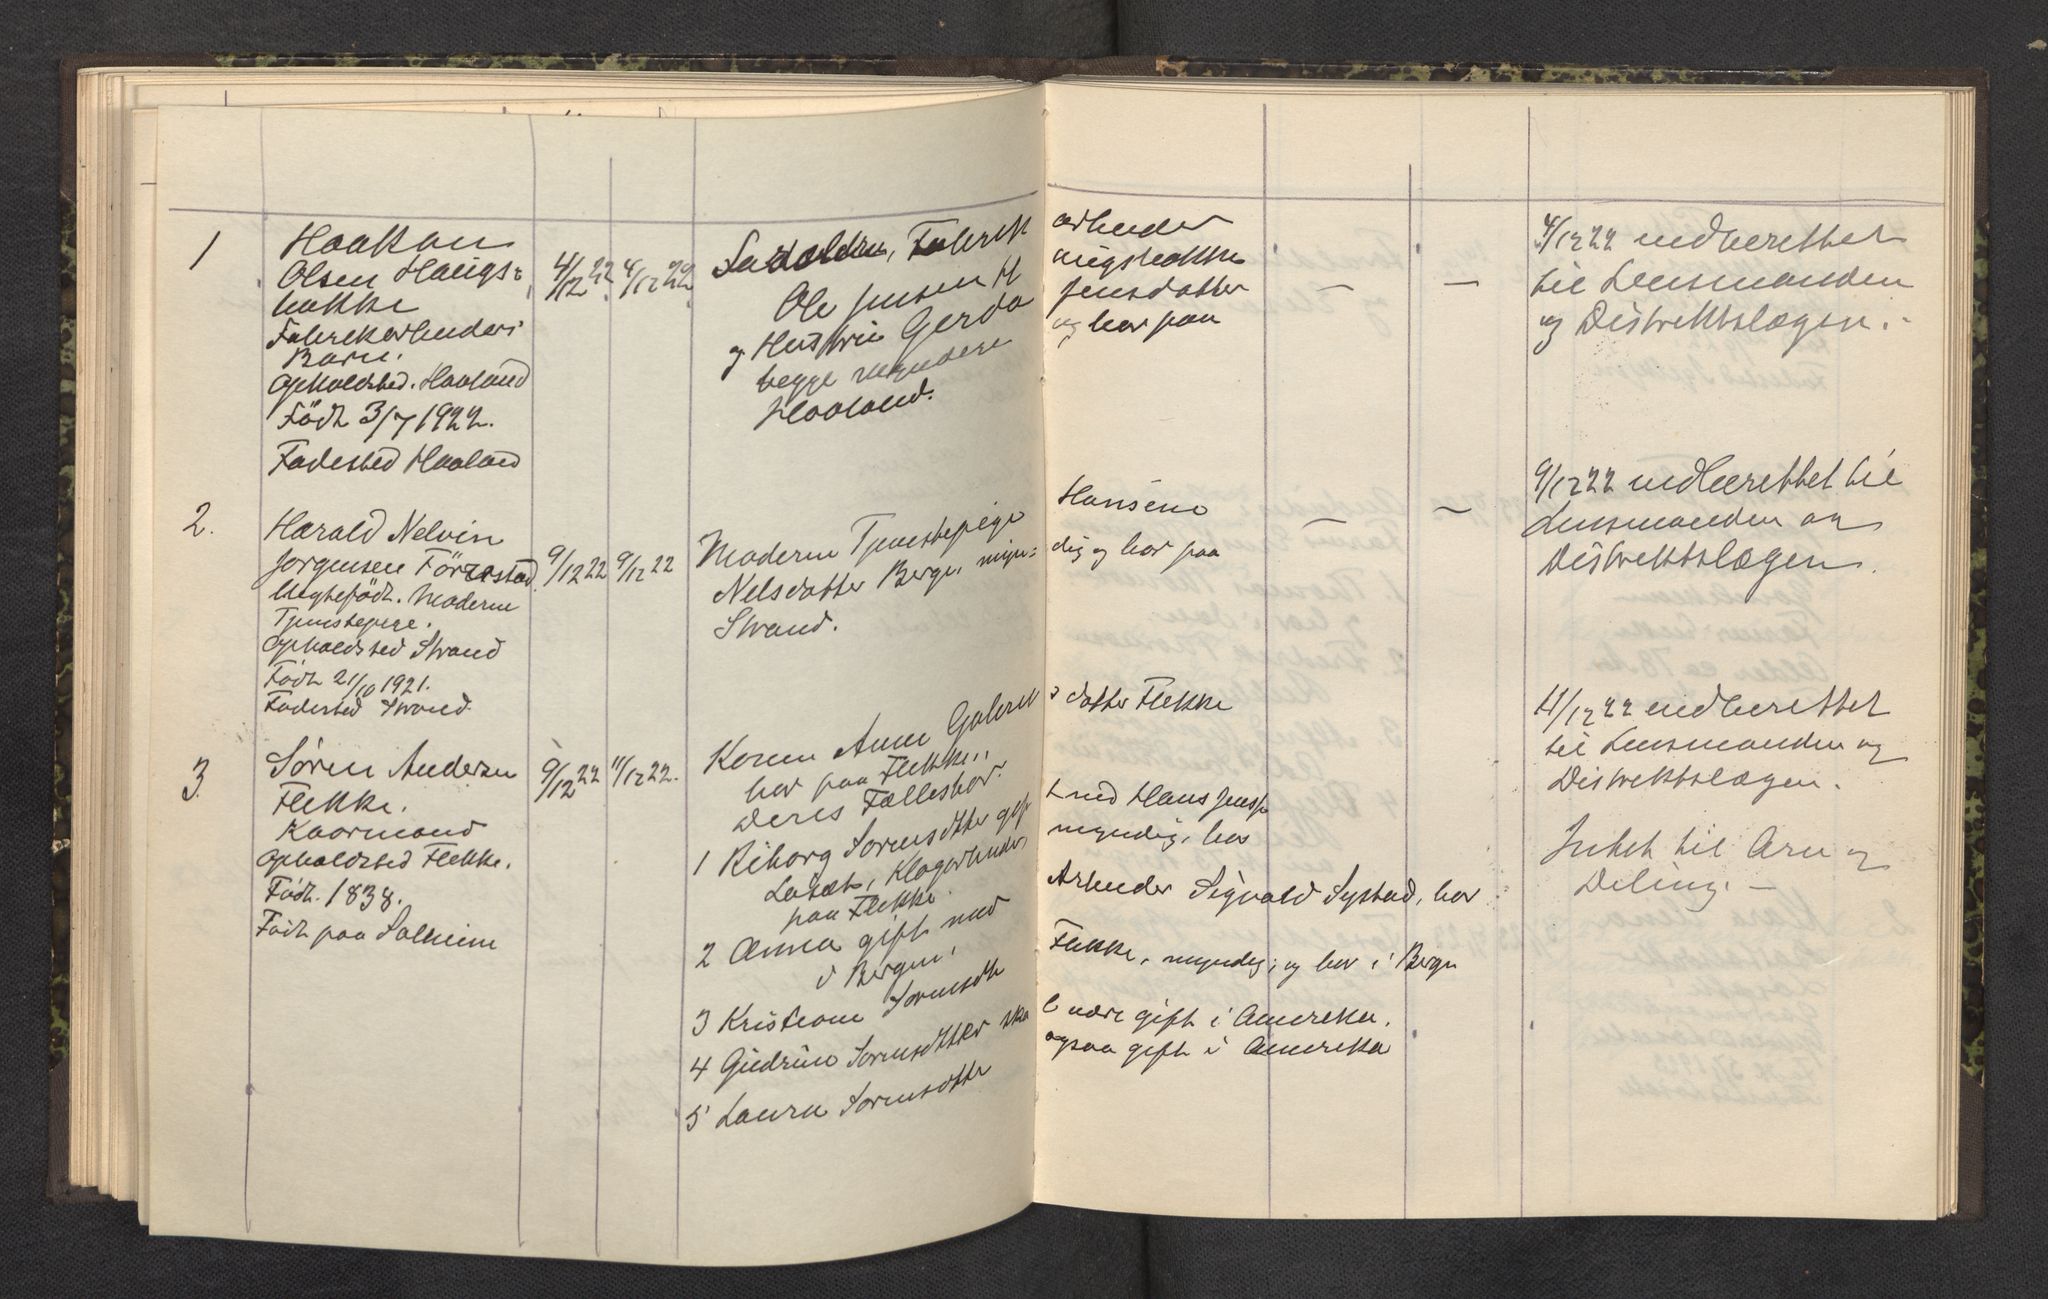 1
Haakon
Olsen Haugs-
bakke
Fabrekarbeiders
Barn.
Opholdsted. Haaland
Född 3/7 1922.
Födested Haaland
4/12 22
4/12 22
Forældrene, Fabrek
Ole Jensen H
og Hustru Gerda
begge myndere
Haaland.
arbeider
augsbakke
Jensdatter
og bor paa
—
—
4/12 22 indberettet
til Lensmanden
og Distriktslægen.-
2.
Harald Nelvin
Jorgensen Förrestad
Uegtefödt. Moderen
Tjenestepige.
Opholdsted Strand
Född 21/10 1921.
Födested Strand
9/12 22
9/12 22
Moderen Tjenestepige
Nelsdatter Berge, myn-
Strand.
Hansine
dig og bor paa
—
—
9/12 22 indberettet til
Lensmanden og
Distriktslægen.
3.
Sören Andersen
Flekke.
Kaarmand
Opholdsted Flekke.
Född. 1838.
Född paa Salheim
9/12 22
11/12 22.
Karen Anne Gabrek
bor paa Flekke.,
Deres Fællesbar.
1 Riborg Sörensdtter gif
Ladæt, Klagerbinder,
paa Flekke.
2 Anna gift med
i Bergen.
3 Kristiane Sörensdtt
4 Gudrun Sörensdtter ska
5 Laura Sörensdtte
s datter Flekke
t med Hans Jensen
myndig, bor
Arbeider Sigvald Systad, bor
Flekke, myndig, og bor i Bergen
l være gift i Amerika.
ogsaa gift i Amerika
11/12 22 indberettet
til Lensmanden og
Distriktslægen.
Intet til Arv og
Deling. —